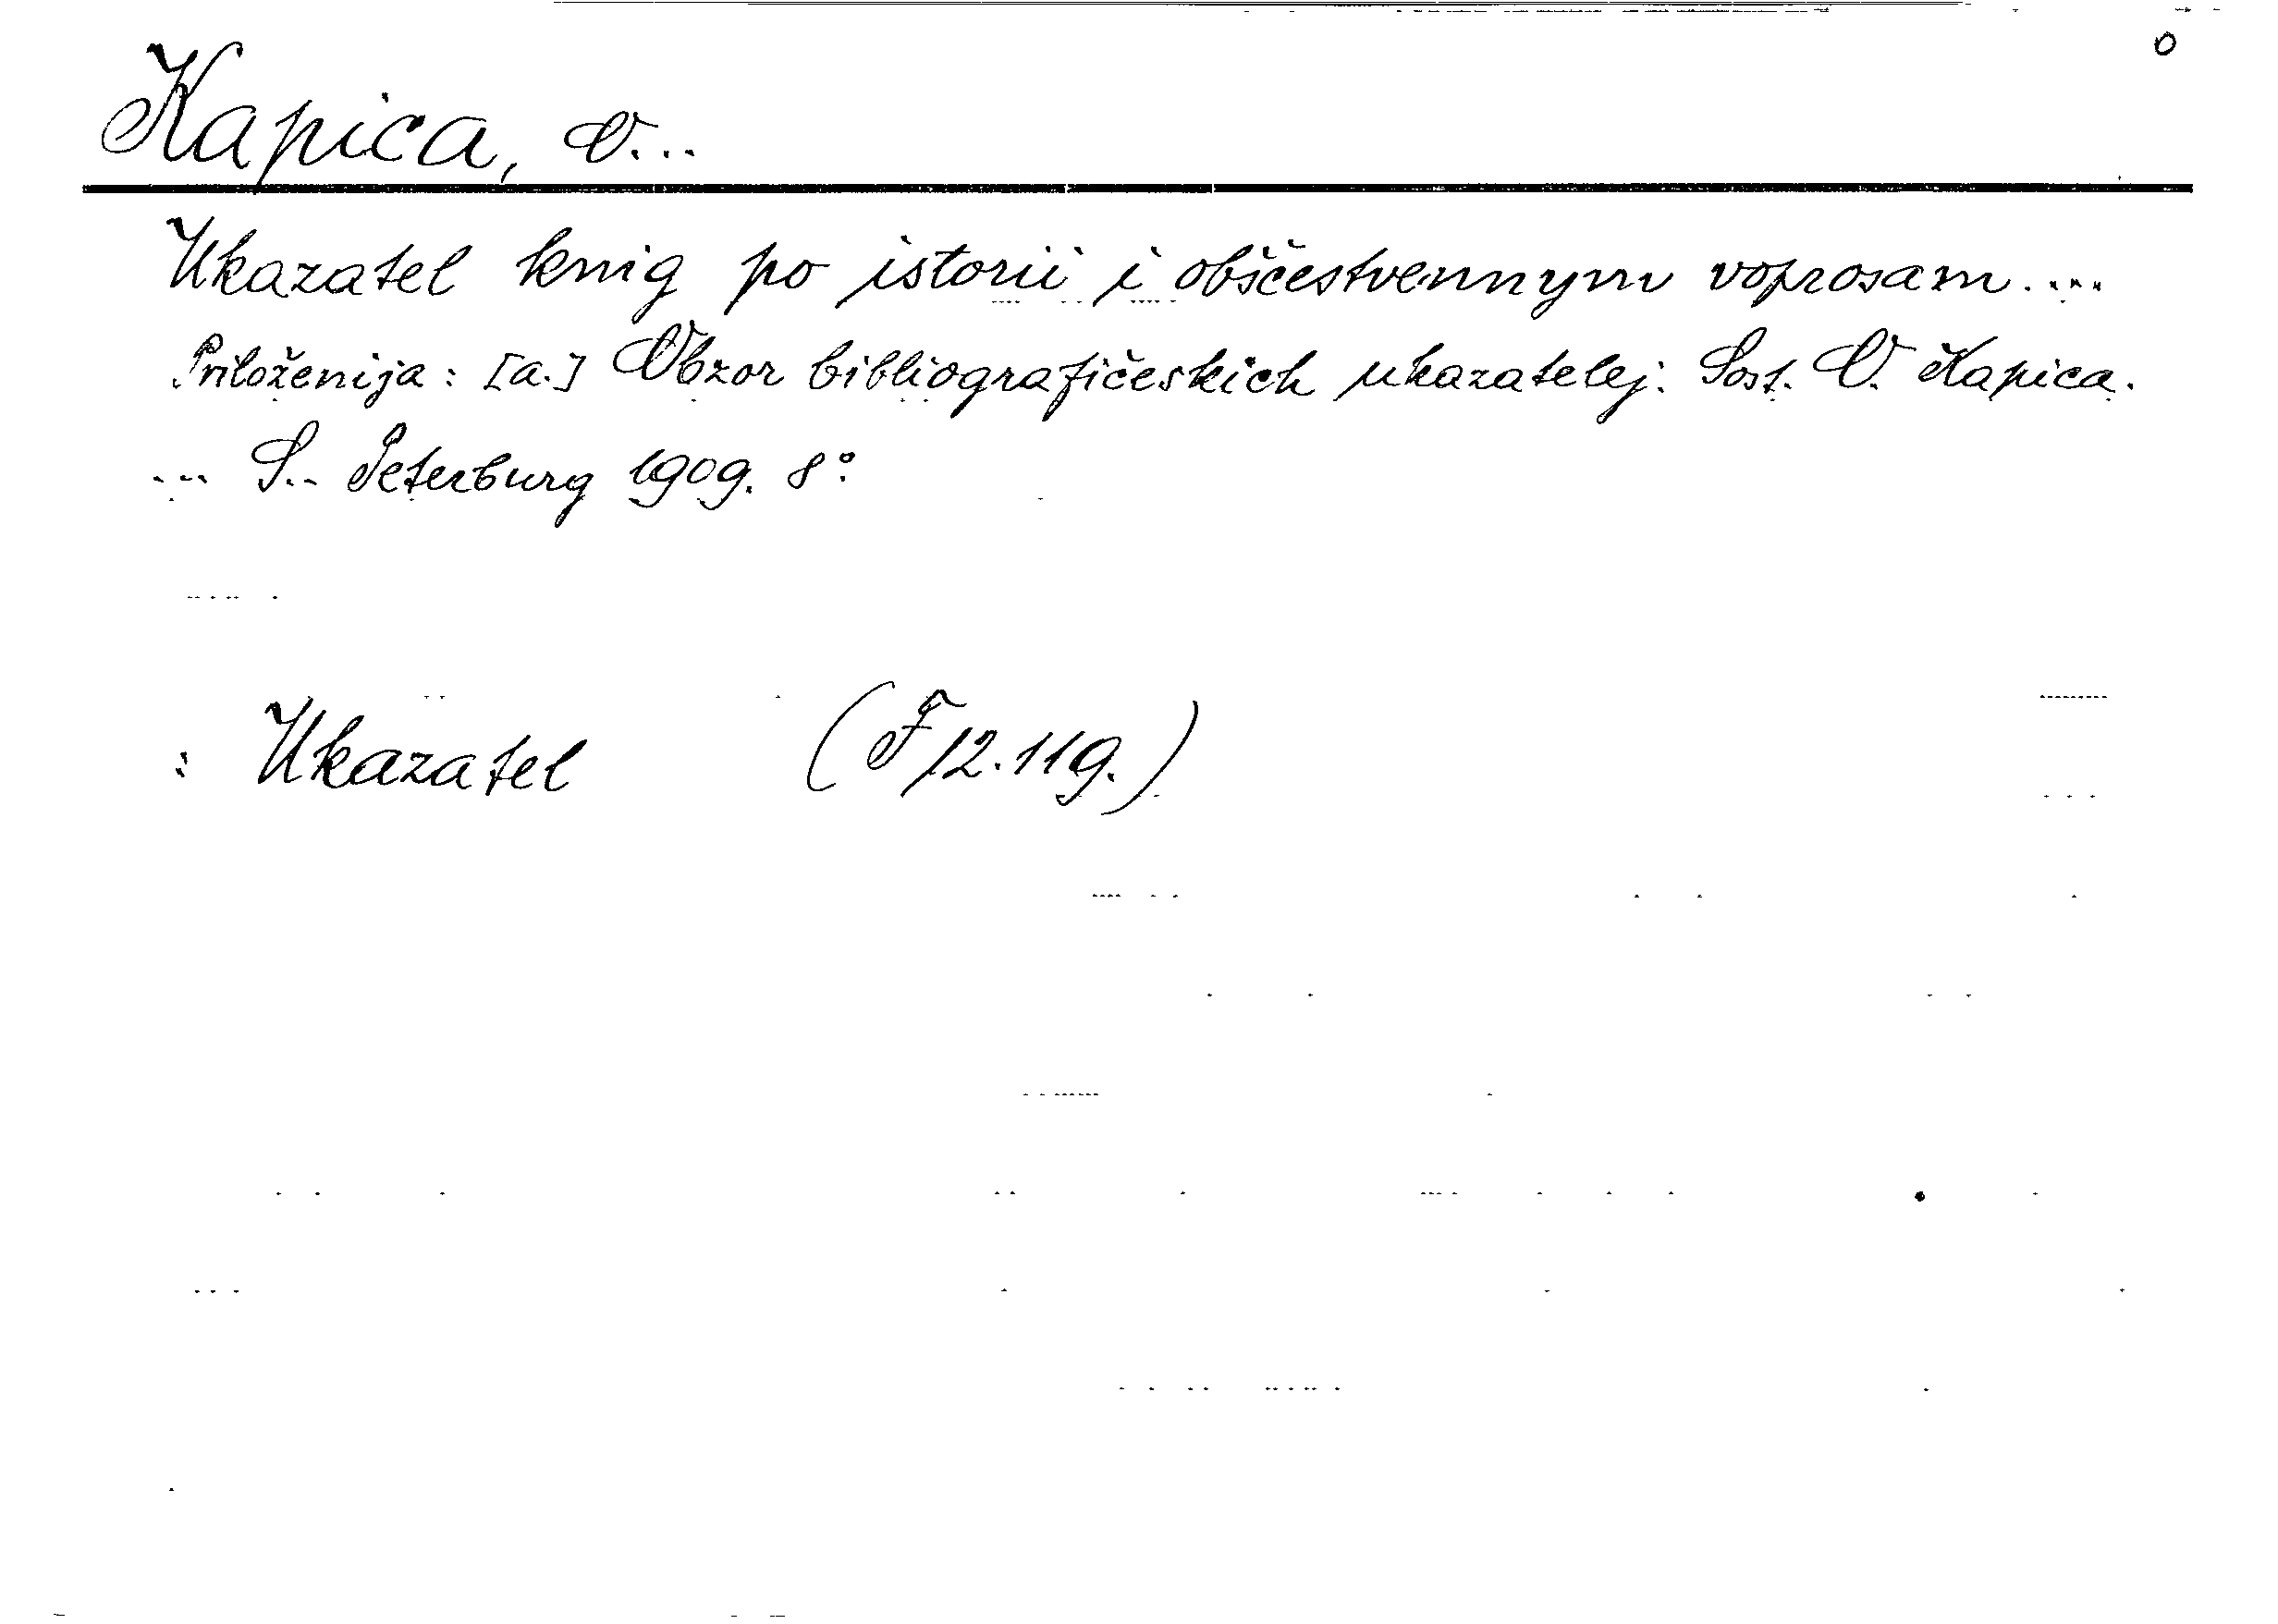 o
Kapica, O...
Ukazatel knig po istorii i obščestvennym voprosam....
Priloženija: [a.] Obzor bibliografičeskich ukazatelej: Sost. O. Kapica.
... S.. Peterburg 1909. 8°
: Ukazatel (F 12.119.)